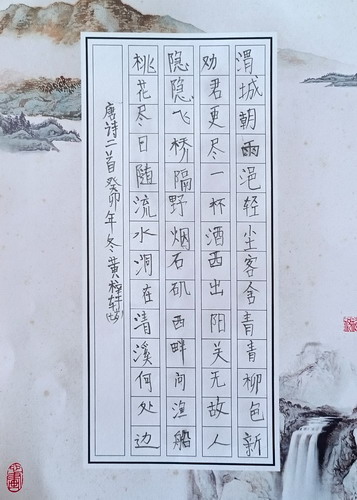 渭城朝雨浥轻尘客舍青青柳色新
劝君更尽一杯酒西出阳关无故人
隐隐飞桥隔野烟石矶西畔问渔船
桃花尽日随流水洞在清溪何处边
唐诗二首癸卯年冬黄梓轩